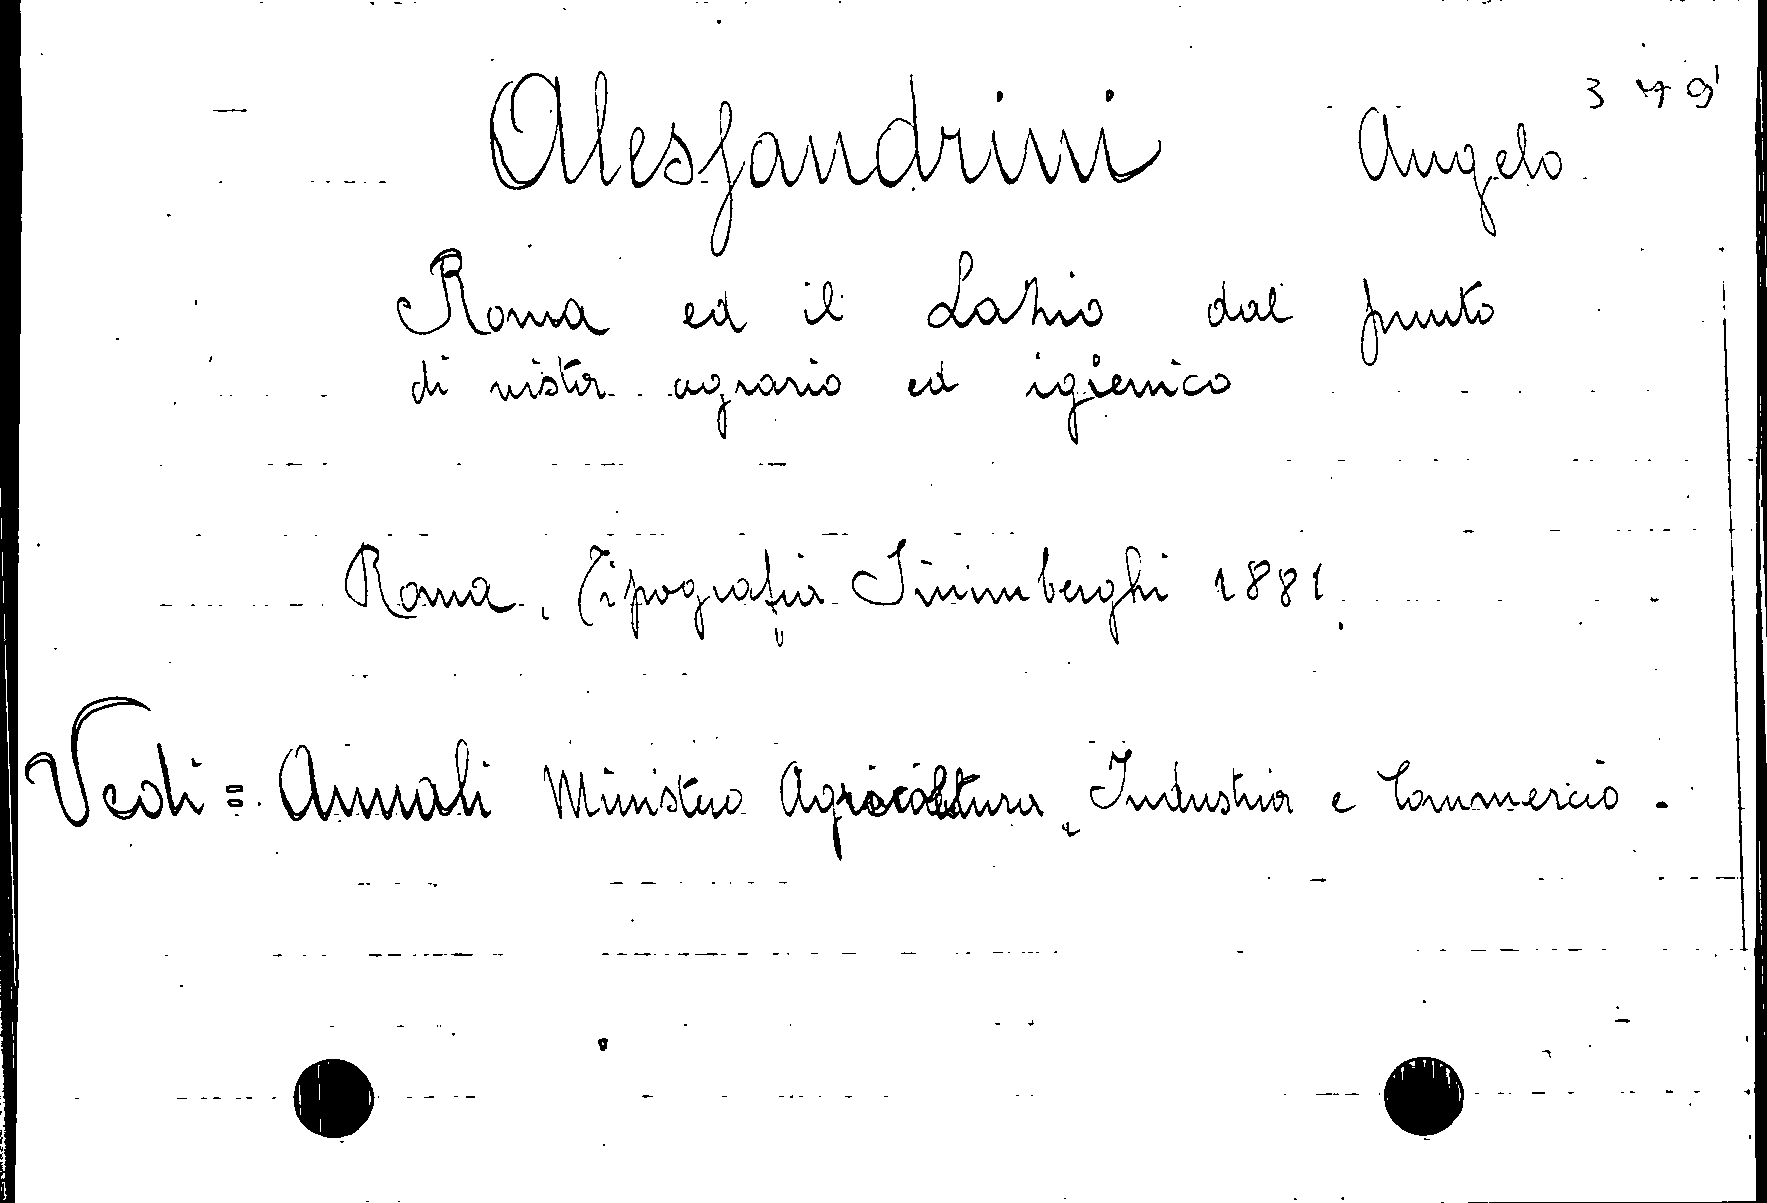 379
Alessandrini Angelo
Roma ed il Lazio dal punto
di vista agrario ed igienico
Roma, Tipografia Sinimberghi 1881
Vedi = Annali Ministero Agricoltura, Industria e Commercio.